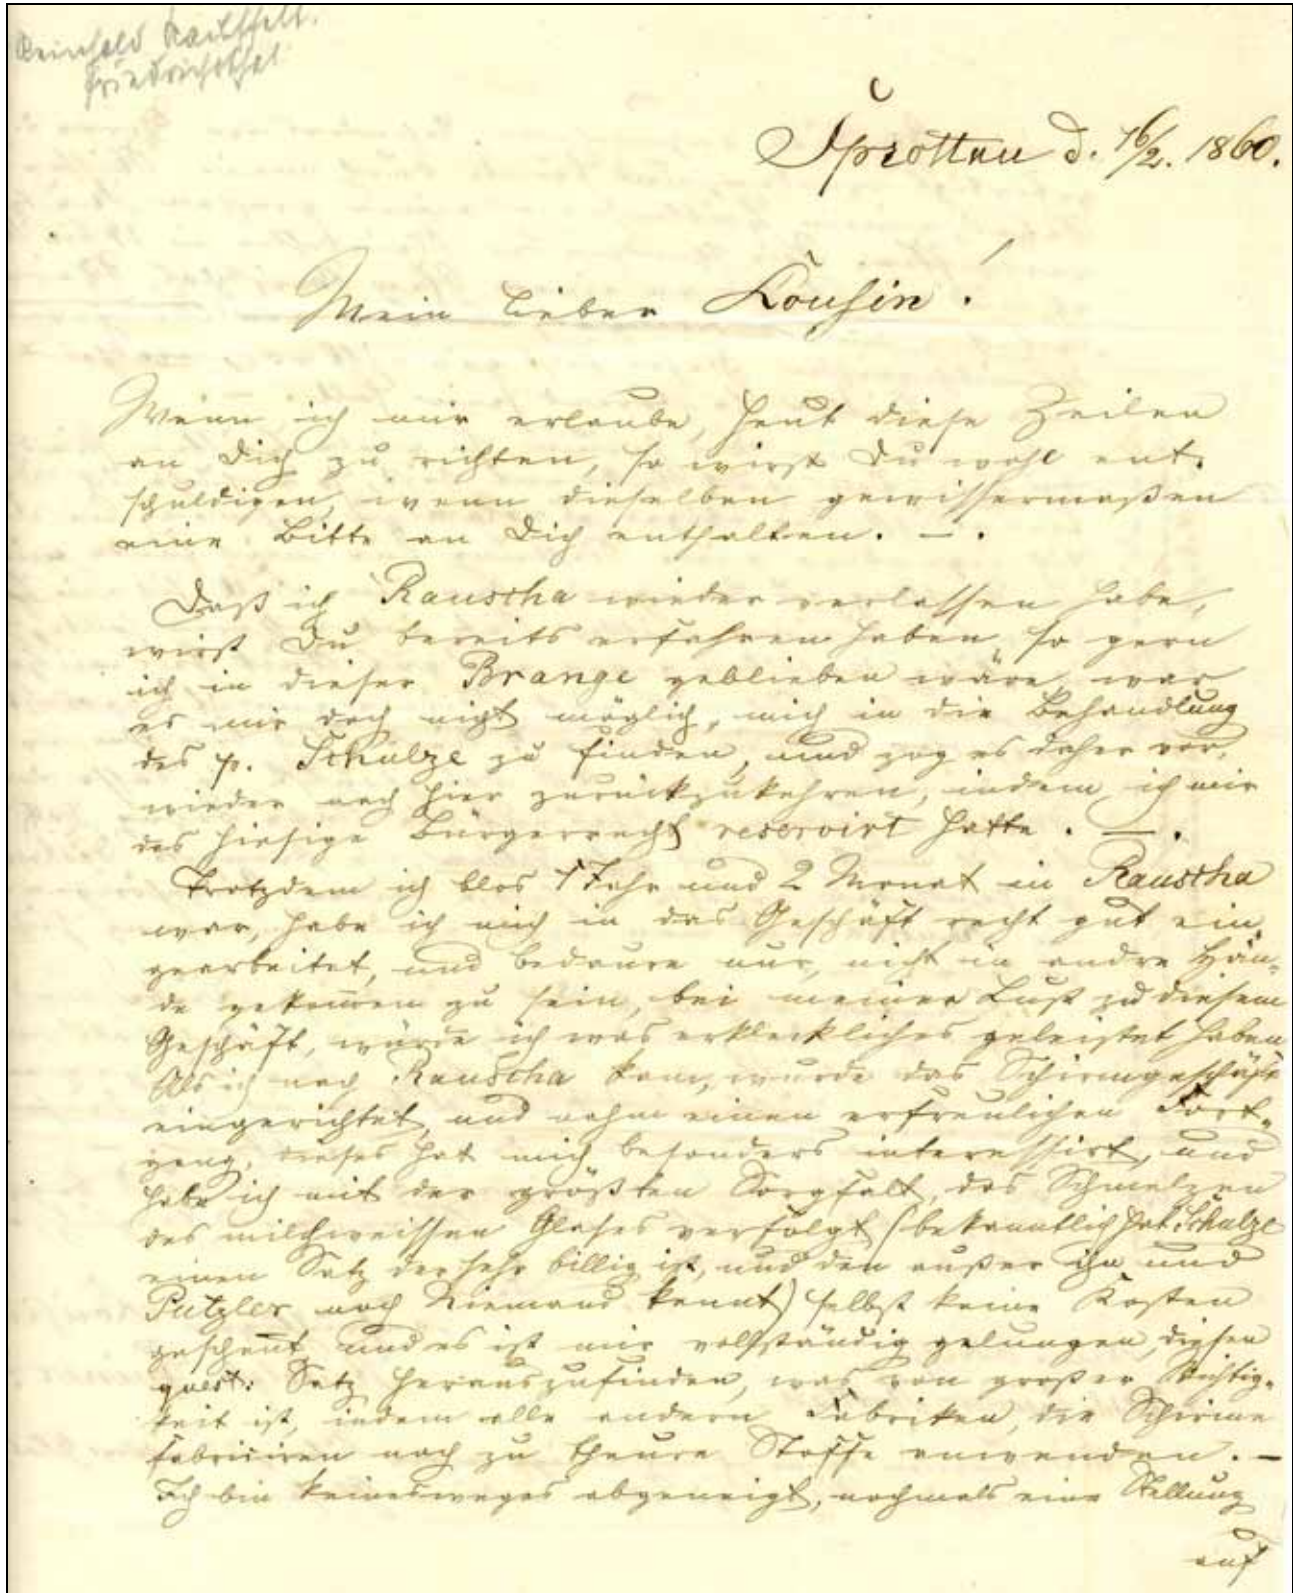 Reinhold
Friedrichsthal
Sprottau d. 16/2. 1860.
Mein lieber Kousin!
Wenn ich mir erlaube, heut diese Zeilen
an Dich zu richten, so wirst Du wohl ent-
schuldigen, wenn dieselben gewissermaßen
eine Bitte an Dich enthalten. —.
Daß ich Rauscha wieder verlassen habe,
wirst Du bereits erfahren haben, so gern
ich in dieser Brange geblieben wäre, war
es mir doch nicht möglich, mich in die Behandlung
des p. Schulze zu finden, und zog es daher vor,
wieder nach hier zurückzukehren, indem ich mir
das hiesige Bürgerrecht reservirt hatte. —.
Trotzdem ich blos 1 Jahr und 2 Monat in Rauscha
war, habe ich mich in das Geschäft recht gut ein-
gearbeitet, und bedaure nur, nicht in andre Hän-
de gekom̄en zu sein, bei meiner Lust zu diesem
Geschäft, würde ich was erkleckliches geleistet haben
Als ich nach Rauscha kam, wurde das Schirmgeschäft
eingerichtet, und nahm einen erfreulichen Fort-
gang, dieses hat mich besonders interessirt, und
habe ich mit der größten Sorgfalt, das Schmelzen
des milchweissen Glases verfolgt (bekanntlich hat Schulze
einen Satz der sehr billig ist, und den außer ihn und
Putzler noch Niemand kennt) selbst keine Kosten
gescheut und es ist mir vollständig gelungen, diesen
quest: Satz herauszufinden, was von großer Wichtig-
keit ist, indem alle andern Fabriken, die Schirme
fabriciren noch zu theure Stoffe anwenden. —
Ich bin keinesweges abgeneigt, nochmals eine Stellung
auf